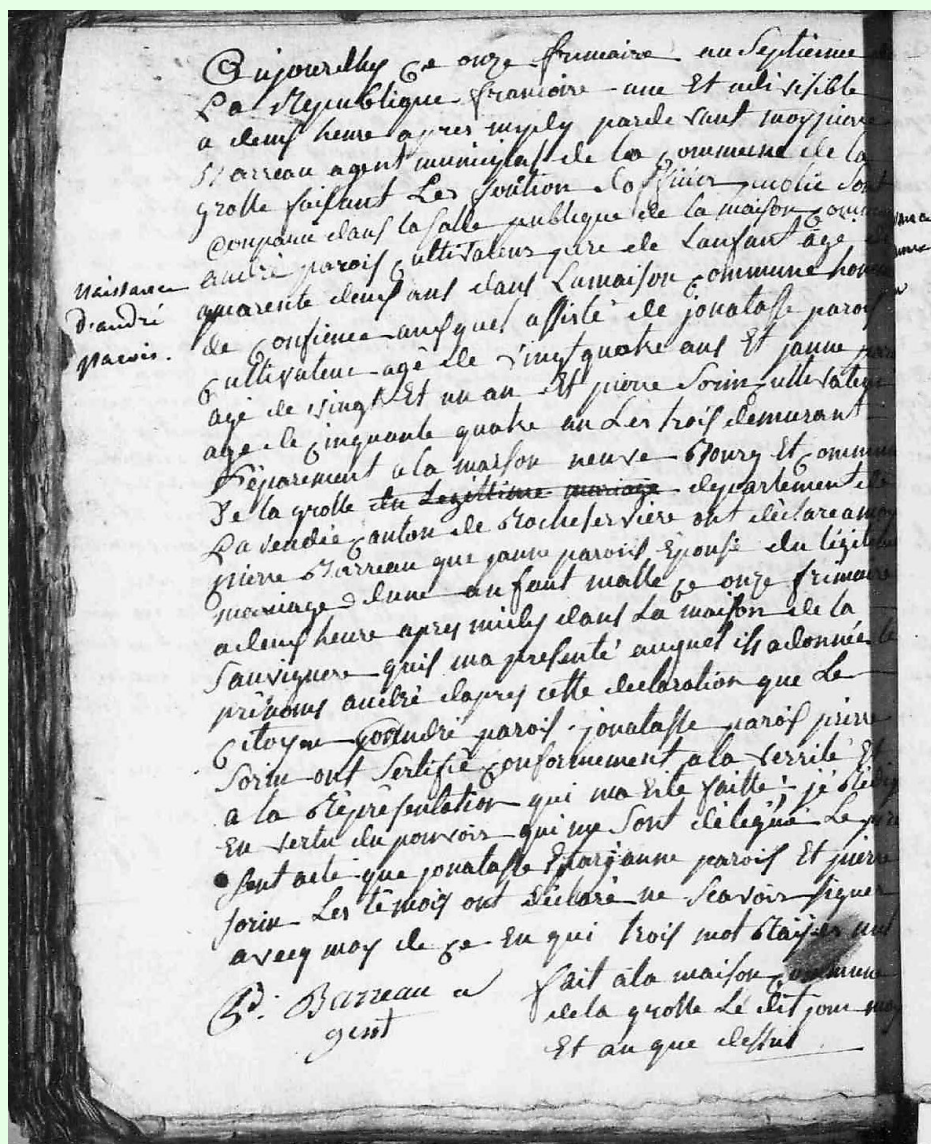 Aujourdhy Ce onze frimaire an Septieme de
La Republique francoire une Et indivisible
a deux heure apres midy parde vant moy pierre
Barreau agent municipal de la Commune de la
grolle faisant Les fontion dofficier public sont
Comparu dans la salle publique de la maison Commune
andré parois Cultivateur pere de Lanfant âge de
quarente deux ans dans Lamaison Commune
de assisté de jonatasse parois
Cultivateur agé de vingt quatre ans Et janne parois
agé de vingt Et un an Et pierre Sorin cultivateur
age de Cinquante quatre an Les trois demurant
Séparement a la maison neuve Bourg Et Commune
De la grolle en Legittime mariage departement de
La vendée Canton de Rocheservière ont déclare a moy
pierre Barreau que janne parois Epouse du legitime
mariage dune anfant malle Ce onze frimaire
a deux heure apres midy dans La maison de la
Sauvignere quis ma presenté auquel ils a donnée le
prénoms andré dapres cette declaration que Le
Citoyen andré parois jonatasse parois pierre
Sorin ont Sertifié Conformement a la verrité Et
a la Représentation qui ma Eté faitte jé Rédigé
En vertu du pouvoir qui me Sont délégué Le pre
sent acte que jonatasse Et janne parois Et pierre
sorin Les témois ont déclaré ne Scavoir signer
avecq moy de Ce En qui trois mot Rayés nul
fait a la maison Commune
de la grolle Lé dit jour moy
Et an que dessus
P. Barreau a
gent
Naissance
d'andré
parois.